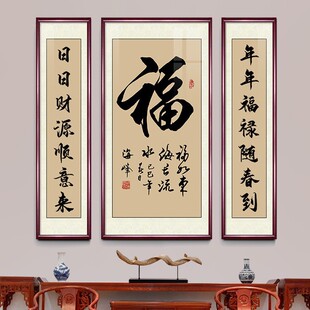 年年福禄随春到
福
福如東
海长流
水
海峰
日日财源顺意来